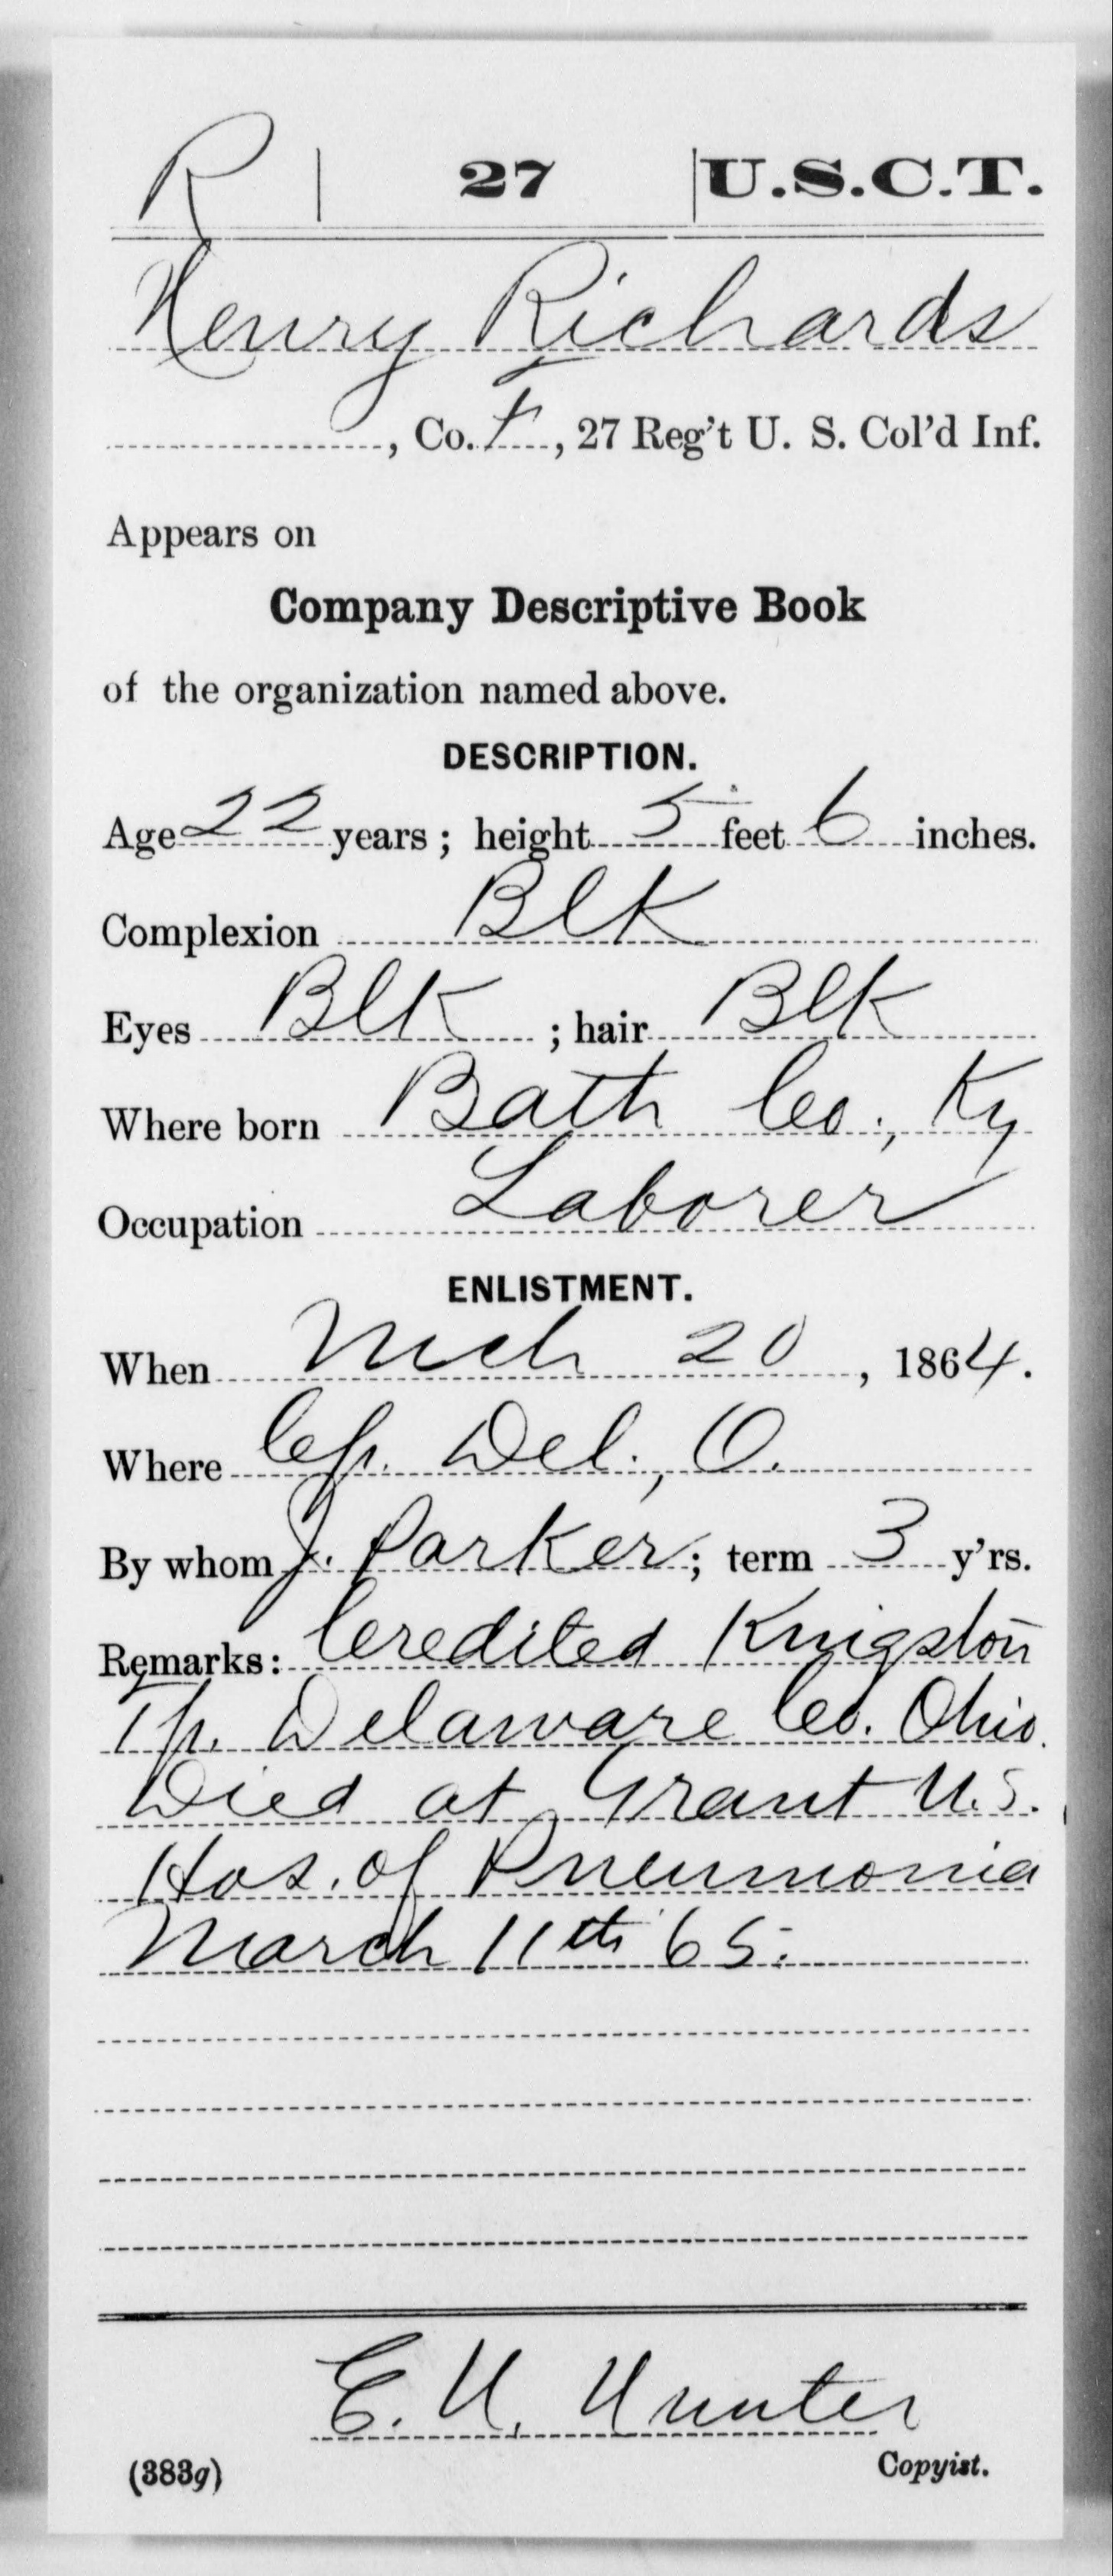 R | 27 | U.S.C.T.
Henry Richards
, Co. F, 27 Reg't U. S. Col'd Inf.
Appears on
Company Descriptive Book
of the organization named above.
DESCRIPTION.
Age 22 years; height 5 feet 6 inches.
Complexion Blk
Eyes Blk; hair Blk
Where born Bath Co., Ky
Occupation Laborer
ENLISTMENT.
When Mch 20, 1864.
Where Cp. Del., O.
By whom J. Parker; term 3 y'rs.
Remarks: Credited Kingston
Tp. Delaware Co. Ohio.
Died at Grant U.S.
Hos. of Pneumonia
March 11th 65.
E. H. Hunter
(383g) Copyist.